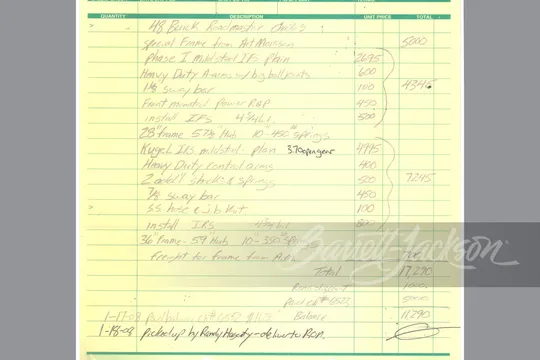 QUANTITY DESCRIPTION UNIT PRICE TOTAL
48 Buick Roadmaster Chassis
special Frame from Art Morrison 5000
phase I mild steel IFS plain 2695
Heavy Duty A-arms w/ big ball joints 600
1 1/8 sway bar 100 4345
Front mounted power R&P 450
install IFS 500
28" frame 57 1/2" Hub 10-450# springs
Kugel IRS mild steel plain 3.70 open gear 4995
Heavy Duty control arms 400
2 add'l shocks & springs 500 7245
7/8 sway bar 450
SS hose & Kit 100
install IRS 800
36" frame - 59" Hub 10-350# springs
freight for frame from
Total 17,290
Barrett-Jackson
5000
1-17-08 Balance 11290
1-18-08 picked up by Randy - deliver to